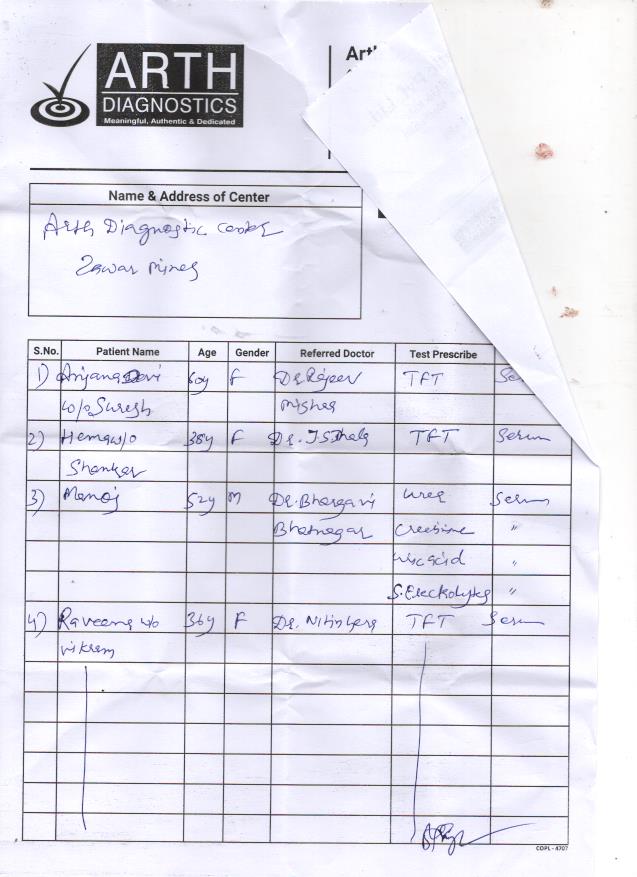 ARTH
DIAGNOSTICS
Meaningful, Authentic & Dedicated
Name & Address of Center
Arth Diagnostic Center
Zawar Mines
S.No. Patient Name Age Gender Referred Doctor Test Prescribe
1) Anjana Devi 60y F Dr Rajeev TFT
w/o Suresh Mishra
2) Hema w/o 38y F Dr. TFT Serum
Shankar
3) Manoj 52y M Dr. Bhargavi Urea Serum
Bhatnagar Creatinine "
Uric acid "
S. Electrolytes "
4) Raveena w/o 36y F Dr. Nitin TFT Serum
Vikram
CDPL - 4707